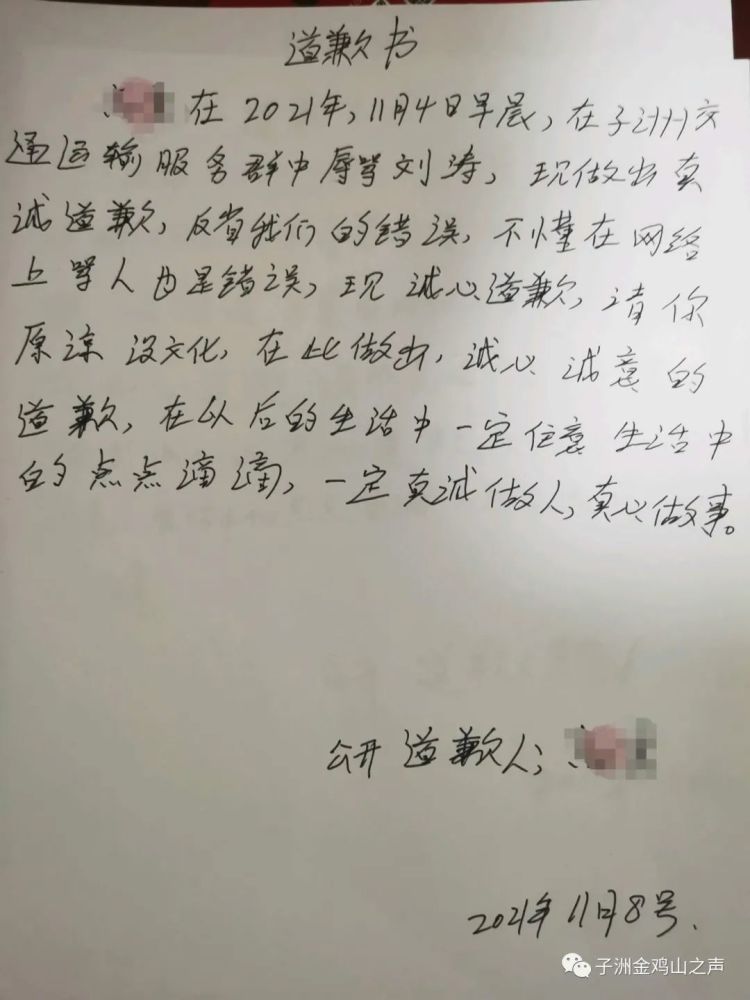 道歉书
在2021年,11月4日早晨,在子洲交
通运输服务群中辱骂刘涛,现做出真
诚道歉,反省我们的错误,不懂在网络
上骂人也是错误,现诚心道歉,请你
原谅没文化,在此做出,诚心诚意的
道歉,在以后的生活中一定住意生活中
的点点滴滴,一定真诚做人,真心做事。
公开道歉人;
2021年11月8号.
子洲金鸡山之声